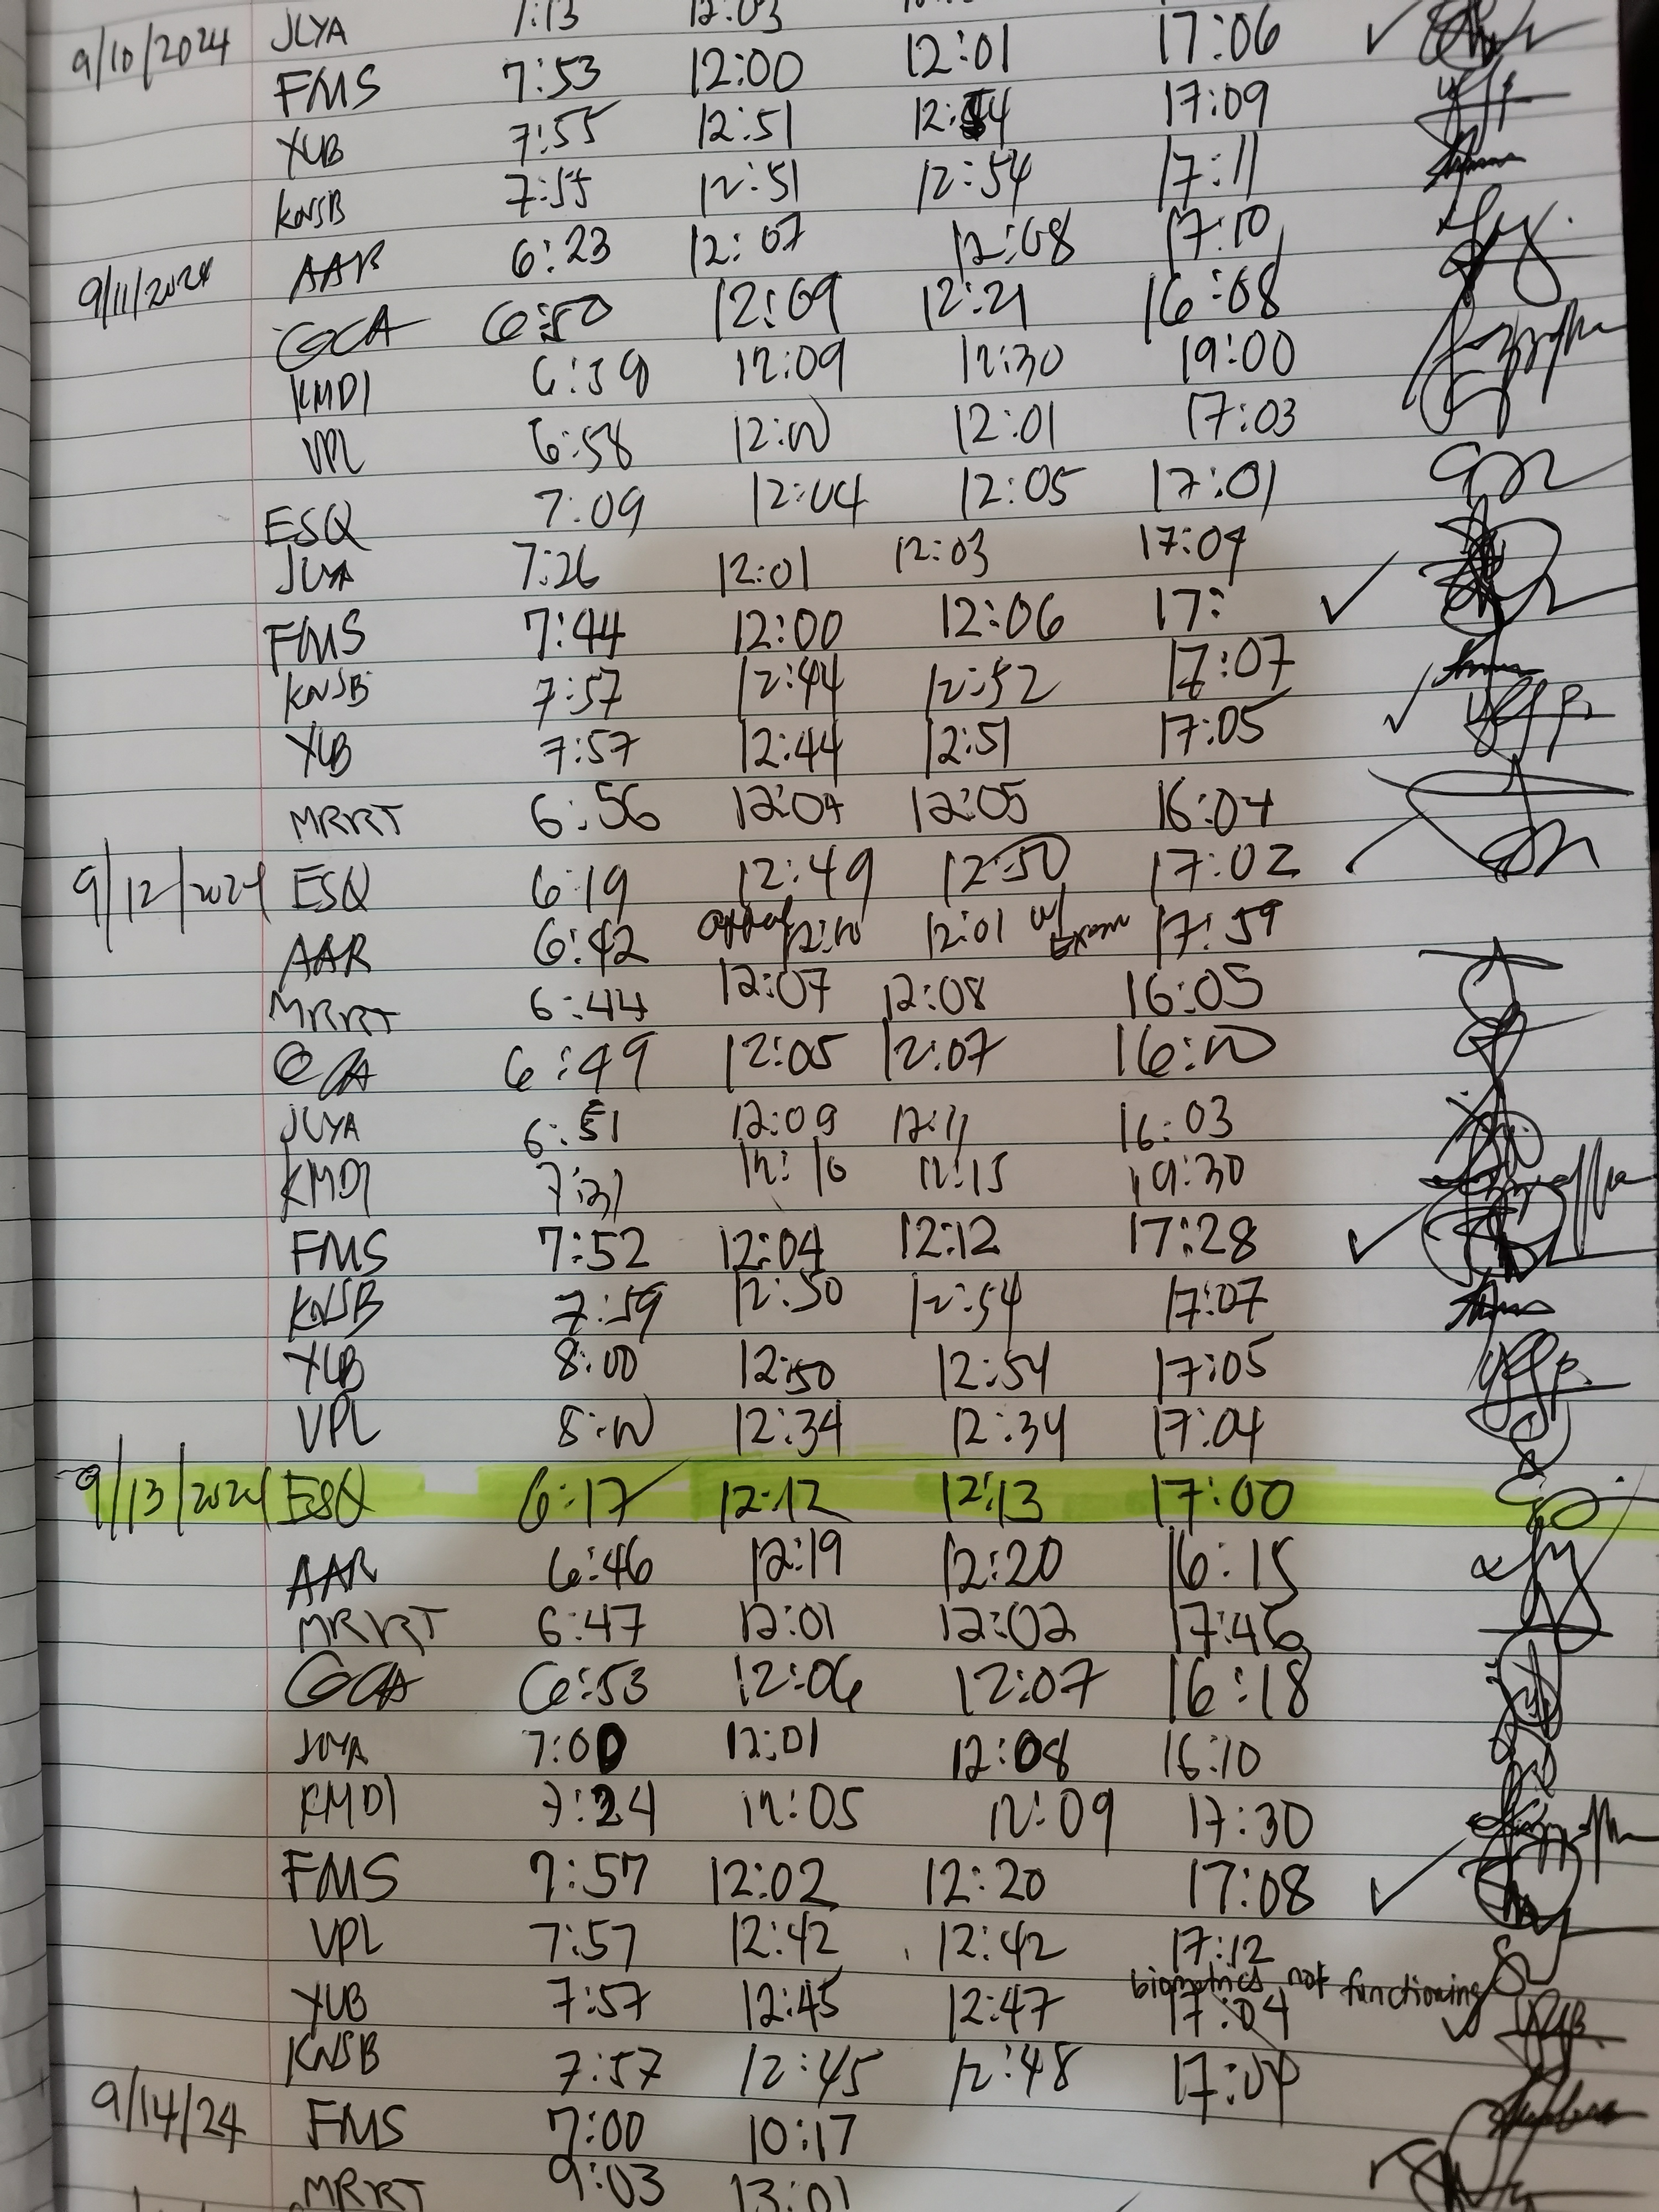 9/10/2024 JLYA 7:13 12:03
FMS 7:53 12:00 12:01 17:06
YUB 7:55 12:51 12:54 17:09
KNSB 7:55 12:51 12:54 17:11
9/11/2024 AAR 6:23 12:07 12:08 17:10
GCA 6:50 12:09 12:21 16:08
KMDI 6:59 12:09 12:30 19:00
VPL 6:58 12:00 12:01 17:03
ESQ 7:09 12:04 12:05 17:01
JLYA 7:26 12:01 12:03 17:04
FMS 7:44 12:00 12:06 17:
KNSB 7:57 12:44 12:52 17:07
YUB 7:57 12:44 12:51 17:05
MRRT 6:56 12:04 12:05 16:04
9/12/2024 ESQ 6:19 12:49 12:50 17:02
AAR 6:42 12:10 12:01 w/ Exam 17:59
MRRT 6:44 12:07 12:08 16:05
GCA 6:49 12:05 12:07 16:00
JLYA 6:51 12:09 12:11 16:03
KMDI 7:31 12:10 12:15 19:30
FMS 7:52 12:04 12:12 17:28
KNSB 7:59 12:50 12:54 17:07
YUB 8:00 12:50 12:54 17:05
VPL 8:00 12:34 12:34 17:04
9/13/2024 ESQ 6:17 12:12 12:13 17:00
AAR 6:46 12:19 12:20 16:15
MRRT 6:47 12:01 12:02 17:46
GCA 6:53 12:06 12:07 16:18
JLYA 7:00 12:01 12:08 16:10
KMDI 7:24 12:05 12:09 17:30
FMS 7:57 12:02 12:20 17:08
VPL 7:57 12:42 12:42 17:12
biometrics not functioning
YUB 7:57 12:45 12:47 17:04
KNSB 7:57 12:45 12:48 17:04
9/14/24 FMS 7:00 10:17
MRRT 9:03 13:01